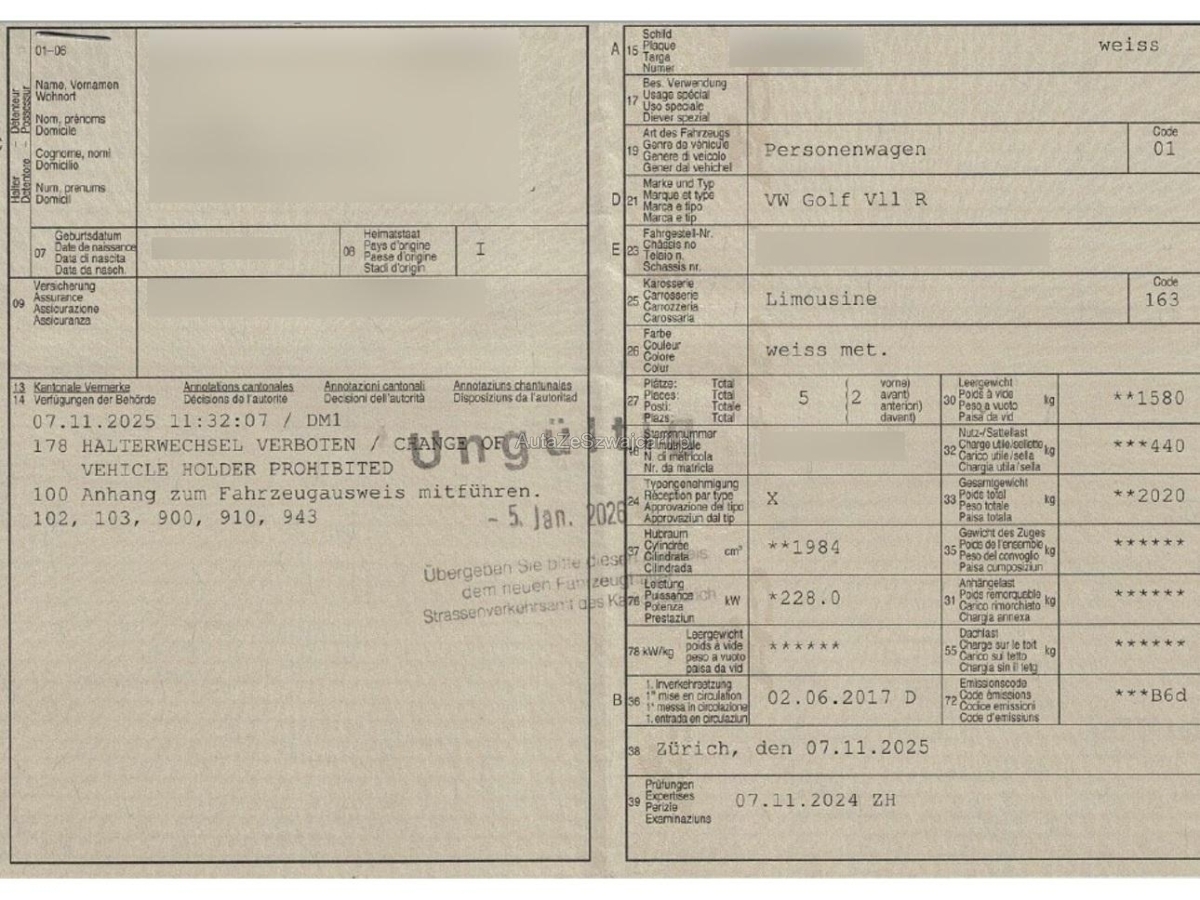 01-06
Name, Vornamen
Wohnort
Nom, prénoms
Domicile
Cognome, nomi
Domicilio
Num, prenums
Domicil
Halter – Détenteur
Detentore – Possessur
07
Geburtsdatum
Date de naissance
Data di nascita
Data da nasch.
08
Heimatstaat
Pays d'origine
Paese d'origine
Stadi d'origin
I
09
Versicherung
Assurance
Assicurazione
Assicuranza
13 Kantonale Vermerke Annotations cantonales Annotazioni cantonali Annotaziuns chantunales
14 Verfügungen der Behörde Décisions de l'autorité Decisioni dell'autorità Disposiziuns da l'autoritad
07.11.2025 11:32:07 / DM1
178 HALTERWECHSEL VERBOTEN / CHANGE OF
VEHICLE HOLDER PROHIBITED
100 Anhang zum Fahrzeugausweis mitführen.
102, 103, 900, 910, 943
- 5. Jan. 2026
Übergeben Sie bitte diesen
dem neuen
Strassenverkehrsamt des
A 15
Schild
Plaque
Targa
Numer
weiss
17
Bes. Verwendung
Usage spécial
Uso speciale
Diever spezial
19
Art des Fahrzeugs
Genre de véhicule
Genere di veicolo
Gener dal vehichel
Personenwagen
Code
01
D 21
Marke und Typ
Marque et type
Marca e tipo
Marca e tip
VW Golf Vll R
E 23
Fahrgestell-Nr.
Châssis no
Telaio n.
Schassis nr.
25
Karosserie
Carrosserie
Carrozzeria
Carossaria
Limousine
Code
163
26
Farbe
Couleur
Colore
Colur
weiss met.
27
Plätze: Total
Places: Total
Posti: Totale
Plazs: Total
5 (2
vorne)
avant)
anterion)
davant)
30
Leergewicht
Poids à vide
Peso a vuoto
Paisa da vid
kg
**1580
18
Stammnummer
N. di matricola
Nr. da matricla
32
Nutz-/Sattellast
Charge utile/sellette
Carico utile/sella
Chargia utila/sella
kg
***440
24
Typengenehmigung
Réception par type
Approvazione del tipo
Approvaziun dal tip
X
33
Gesamtgewicht
Poids total
Peso totale
Paisa totala
kg
**2020
37
Hubraum
Cylindrée
Cilindrata
Cilindrada
cm³
**1984
35
Gewicht des Zuges
Poids de l'ensemble
Peso del convoglio
Paisa cumposiziun
kg
******
76
Leistung
Puissance
Potenza
Prestaziun
kW
*228.0
31
Anhängelast
Poids remorquable
Carico rimorchiato
Chargia annexa
kg
******
78 kW/kg
Leergewicht
poids à vide
peso a vuoto
paisa da vid
******
55
Dachlast
Charge sur le toit
Carico sul tetto
Chargia sin il tetg
kg
******
B 36
1. Inverkehrsetzung
1re mise en circulation
1a messa in circolazione
1. entrada en circulaziun
02.06.2017 D
72
Emissionscode
Code émissions
Codice emissioni
Code d'emissiuns
***B6d
38 Zürich, den 07.11.2025
39
Prüfungen
Expertises
Perizie
Examinaziuns
07.11.2024 ZH